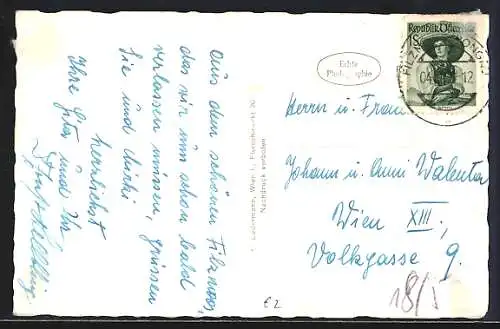 Aus dem schönen Filzmoos,
das wir nun schon bald
verlassen müssen, grüssen
Sie und Michi
herzlichst
Ihre Gita und Ihr
Echte
Republik Österreich
FILZMOOS
04
12
Herrn u. Frau
Johann u. Anna Valenta
Wien XIII,
Volksgasse 9.
Ledermann, Wien I., Fleischmarkt 20
Nachdruck verboten
€2
18/1